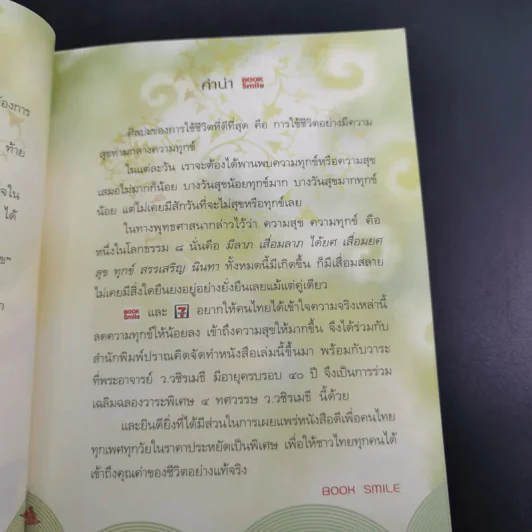 ้องการ
ท้าย
จใน
ได้
ข"
คำนำ BOOK Smile
ศิลปะของการใช้ชีวิตที่ดีที่สุด คือ การใช้ชีวิตอย่างมีความ
สุขท่ามกลางความทุกข์
ในแต่ละวัน เราจะต้องได้พานพบความทุกข์หรือความสุข
เสมอไม่มากก็น้อย บางวันสุขน้อยทุกข์มาก บางวันสุขมากทุกข์
น้อย แต่ไม่เคยมีสักวันที่จะไม่สุขหรือทุกข์เลย
ในทางพุทธศาสนากล่าวไว้ว่า ความสุข ความทุกข์ คือ
หนึ่งในโลกธรรม ๘ นั่นคือ มีลาภ เสื่อมลาภ ได้ยศ เสื่อมยศ
สุข ทุกข์ สรรเสริญ นินทา ทั้งหมดนี้มีเกิดขึ้น ก็มีเสื่อมสลาย
ไม่เคยมีสิ่งใดยืนยงอยู่อย่างยั่งยืนเลยแม้แต่คู่เดียว
BOOK Smile และ 7 อยากให้คนไทยได้เข้าใจความจริงเหล่านี้
ลดความทุกข์ให้น้อยลง เข้าถึงความสุขให้มากขึ้น จึงได้ร่วมกับ
สำนักพิมพ์ปราณคิดจัดทำหนังสือเล่มนี้ขึ้นมา พร้อมกับวาระ
ที่พระอาจารย์ ว.วชิรเมธี มีอายุครบรอบ ๔๐ ปี จึงเป็นการร่วม
เฉลิมฉลองวาระพิเศษ ๔ ทศวรรษ ว.วชิรเมธี นี้ด้วย
และยินดียิ่งที่ได้มีส่วนในการเผยแพร่หนังสือดีเพื่อคนไทย
ทุกเพศทุกวัยในราคาประหยัดเป็นพิเศษ เพื่อให้ชาวไทยทุกคนได้
เข้าถึงคุณค่าของชีวิตอย่างแท้จริง
BOOK SMILE